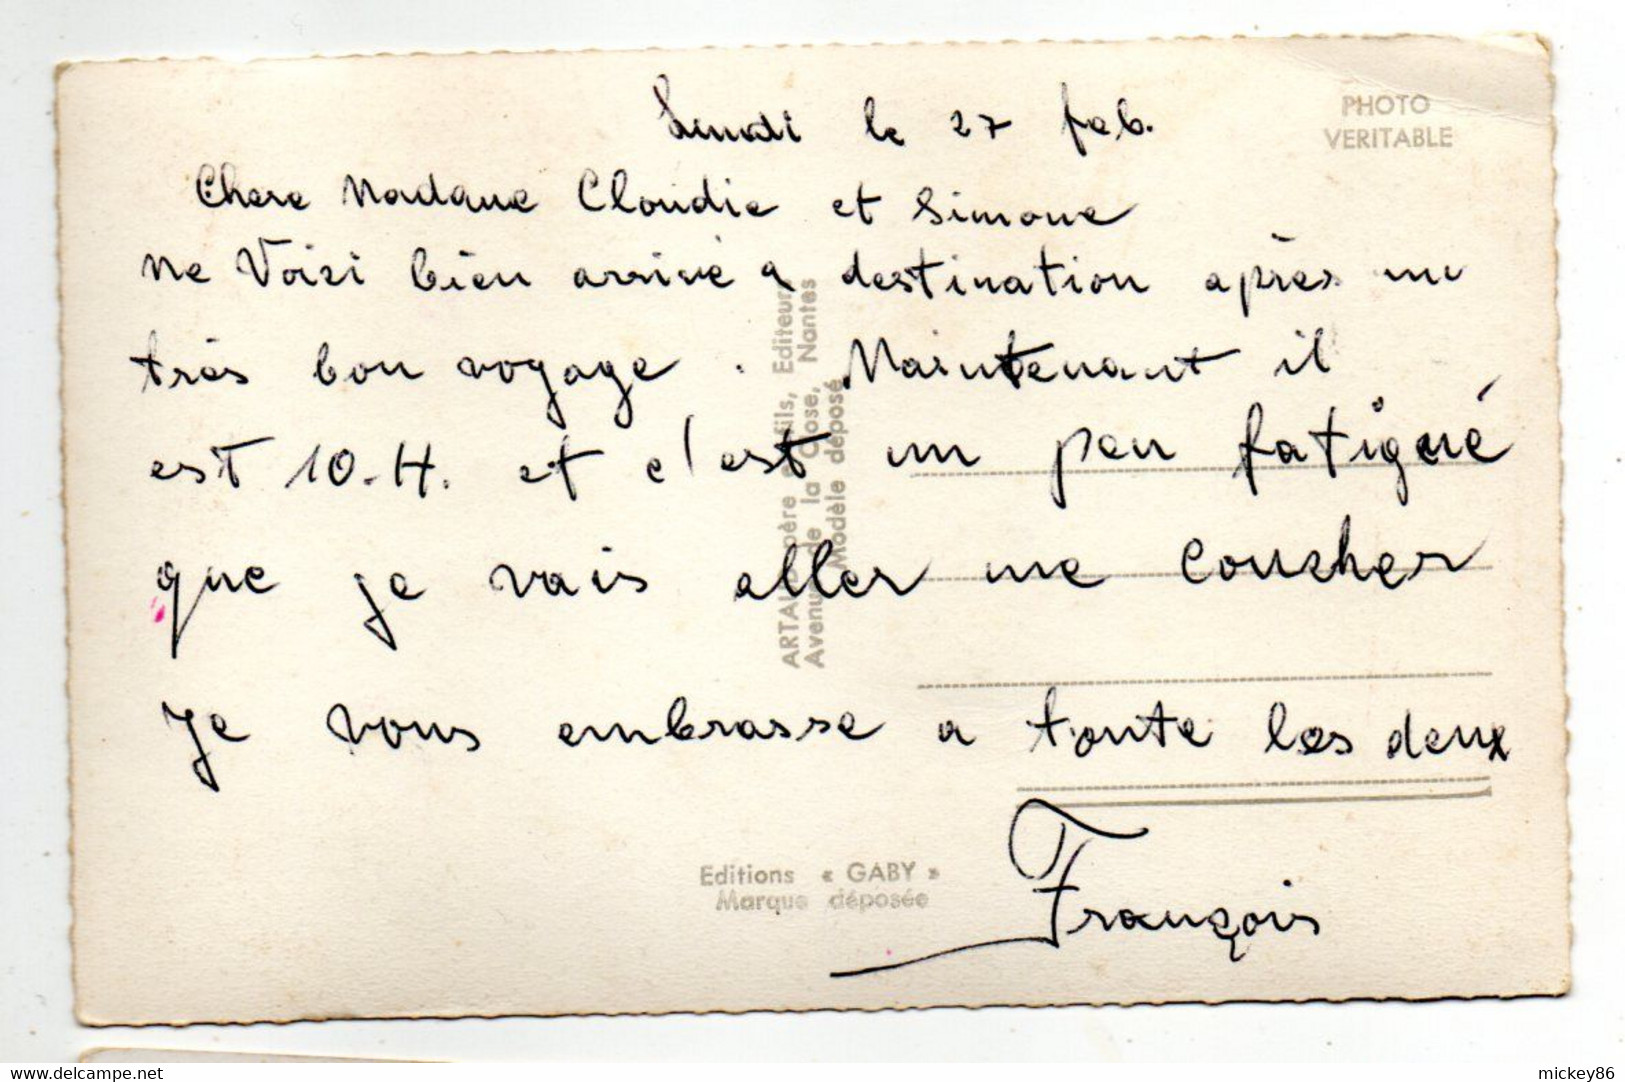 Lundi le 27 feb.
PHOTO
VERITABLE
Chere Madame Cloudie et Simone
Me Voizi bien arrivé a destination après un
très bon voyage. Maintenant il
est 10.H. et c'est un peu fatigué
que je vais aller me coucher
Je vous embrasse a toute les deux
François
ARTAUD père & fils, Editeurs
Avenue de la Close, Nantes
Modèle déposé
Editions « GABY »
Marque déposée
delcampe.net
mickey86